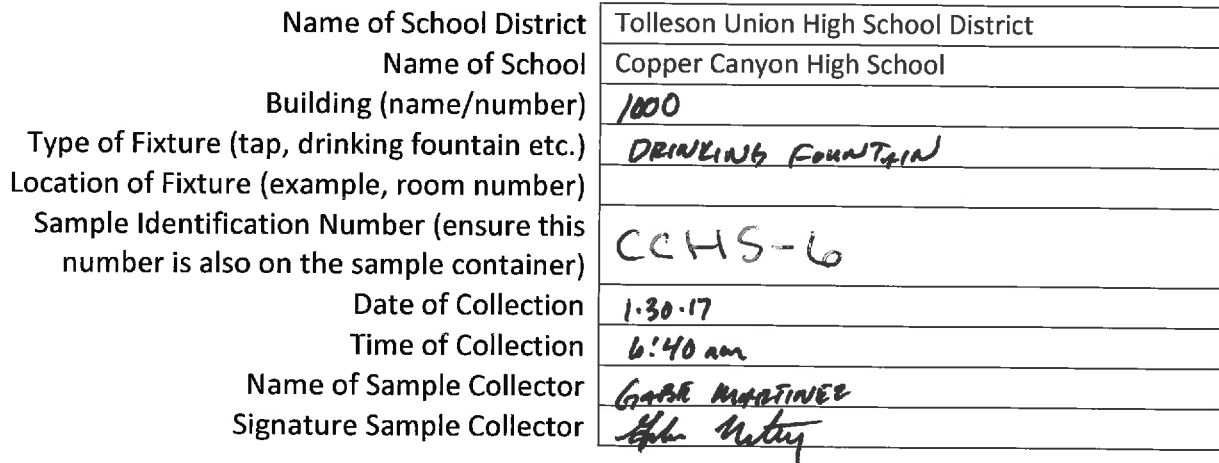 Name of School District Tolleson Union High School District
Name of School Copper Canyon High School
Building (name/number) 1000
Type of Fixture (tap, drinking fountain etc.) DRINKING FOUNTAIN
Location of Fixture (example, room number)
Sample Identification Number (ensure this
number is also on the sample container) CCHS-6
Date of Collection 1.30.17
Time of Collection 6:40 am
Name of Sample Collector GABE MARTINEZ
Signature Sample Collector